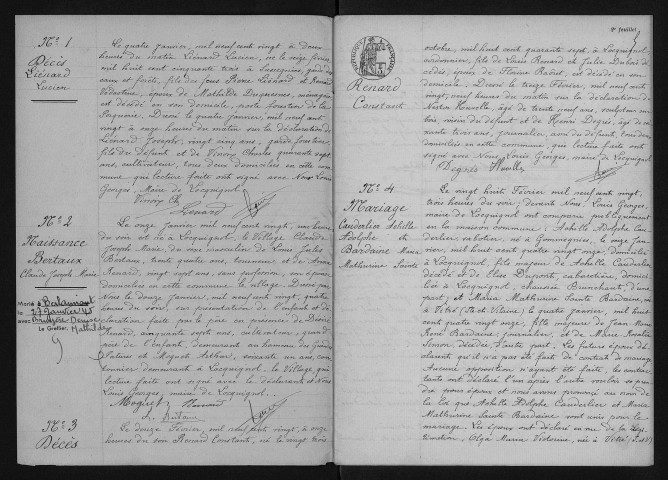 Nº 1
Décès
Liénard
Lucien
Le quatre janvier, mil neuf cent vingt à douze
heures du matin Liénard Lucien, né le seize février
mil huit cent cinquante trois à garde des
eaux et forêts, fils des feus Liénard et
Valentine, époux de Mathilde Duquesnes, ménagère
est décédé en son domicile, poste forestier de la
Dressé le quatre janvier, mil neuf cent
vingt à onze heures du matin sur la déclaration de
Liénard Joseph, vingt cinq ans, garde forestier,
fils du défunt et de Charles quarante sept
ans, cultivateur, tous deux domiciliés en cette commune
qui lecture faite ont signé avec Nous Louis
Georges, Maire de Locquignol.
Lienard
Nº 2
Naissance
Bertaux
Claude Joseph Marie
Marié à
le 27 janvier 45
avec Denise
Le Greffier
Le onze janvier mil neuf cent vingt, une heure
du soir est né à Locquignol, le Village Claude
Joseph Marie, du sexe masculin de Louis Jules
Bertaux, trente quatre ans, et de
Renard, vingt sept ans, sans profession, son épouse
domiciliés en cette commune le village. Dressé par
Nous le douze janvier, mil neuf cent vingt, à quatre
heures du soir, sur présentation de l'enfant et déclaration
faite par le père en présence de
cinquante sept ans, cultivateur, grand
père de l'enfant, demeurant au hameau des Grandes
Patures et Mogret Arthur, soixante un ans,
demeurant à Locquignol, le Village qui
lecture faite ont signé avec le déclarant et Nous
Louis Georges, maire de Locquignol.
Mogret
Nº 3
Décès
Le douze Février, mil neuf cent vingt, à onze
heures du soir Renard Constant, né le vingt trois
2e feuillet
Renard
Constant
octobre, mil huit cent quarante sept, à Locquignol
cordonnier, fils de Louis Renard et Julie Dubois
décédés, époux de Florine Raoul, est décédé en son
domicile. Dressé le treize Février, mil neuf cent
vingt, neuf heures du matin sur la déclaration de
âgé de trente neuf ans, sculpteur sur
bois, voisin du défunt et de Henri Degois, âgé de
trois ans, journalier, ami du défunt, tous deux
domiciliés en cette commune, qui lecture faite ont
signé avec Nous Louis Georges, maire de Locquignol
Nº 4
Mariage
Cauderlier Achille
Adolphe et
Bardaine Maria
Mathurine Sainte
Le vingt huit Février mil neuf cent vingt,
trois heures du soir, devant Nous Louis Georges,
maire de Locquignol ont comparu publiquement
en la maison commune, Achille Adolphe Cauderlier
né à Gommegnies, le onze Janvier,
mil huit cent quatre vingt onze domicilié
à Locquignol, fils majeur de Achille Cauderlier,
décédé et de Elise Duponts, cabaretière, domiciliée
à Locquignol, chaussée Brunehaut d'une
part, et Maria Mathurine Sainte Bardaine, née
à Vitré (Ille et Vilaine) le quatre janvier, mil huit
cent quatre vingt dix, fille majeure de Jean Marie
René Bardaine, journalier, et de Marie Rosalie
décédée d'autre part. Les futurs époux déclarent
qu'il n'a pas été fait de contrat de mariage
Aucune opposition n'ayant été faite, les contractants
ont déclaré l'un après l'autre vouloir se prendre
pour époux et nous avons prononcé au nom de
la loi que Achille Adolphe Cauderlier et Maria
Mathurine Sainte Bardaine sont unis pour le
mariage. Les époux ont déclaré en vue de la légitimation,
Olga Maria Victorine, née à Vitré